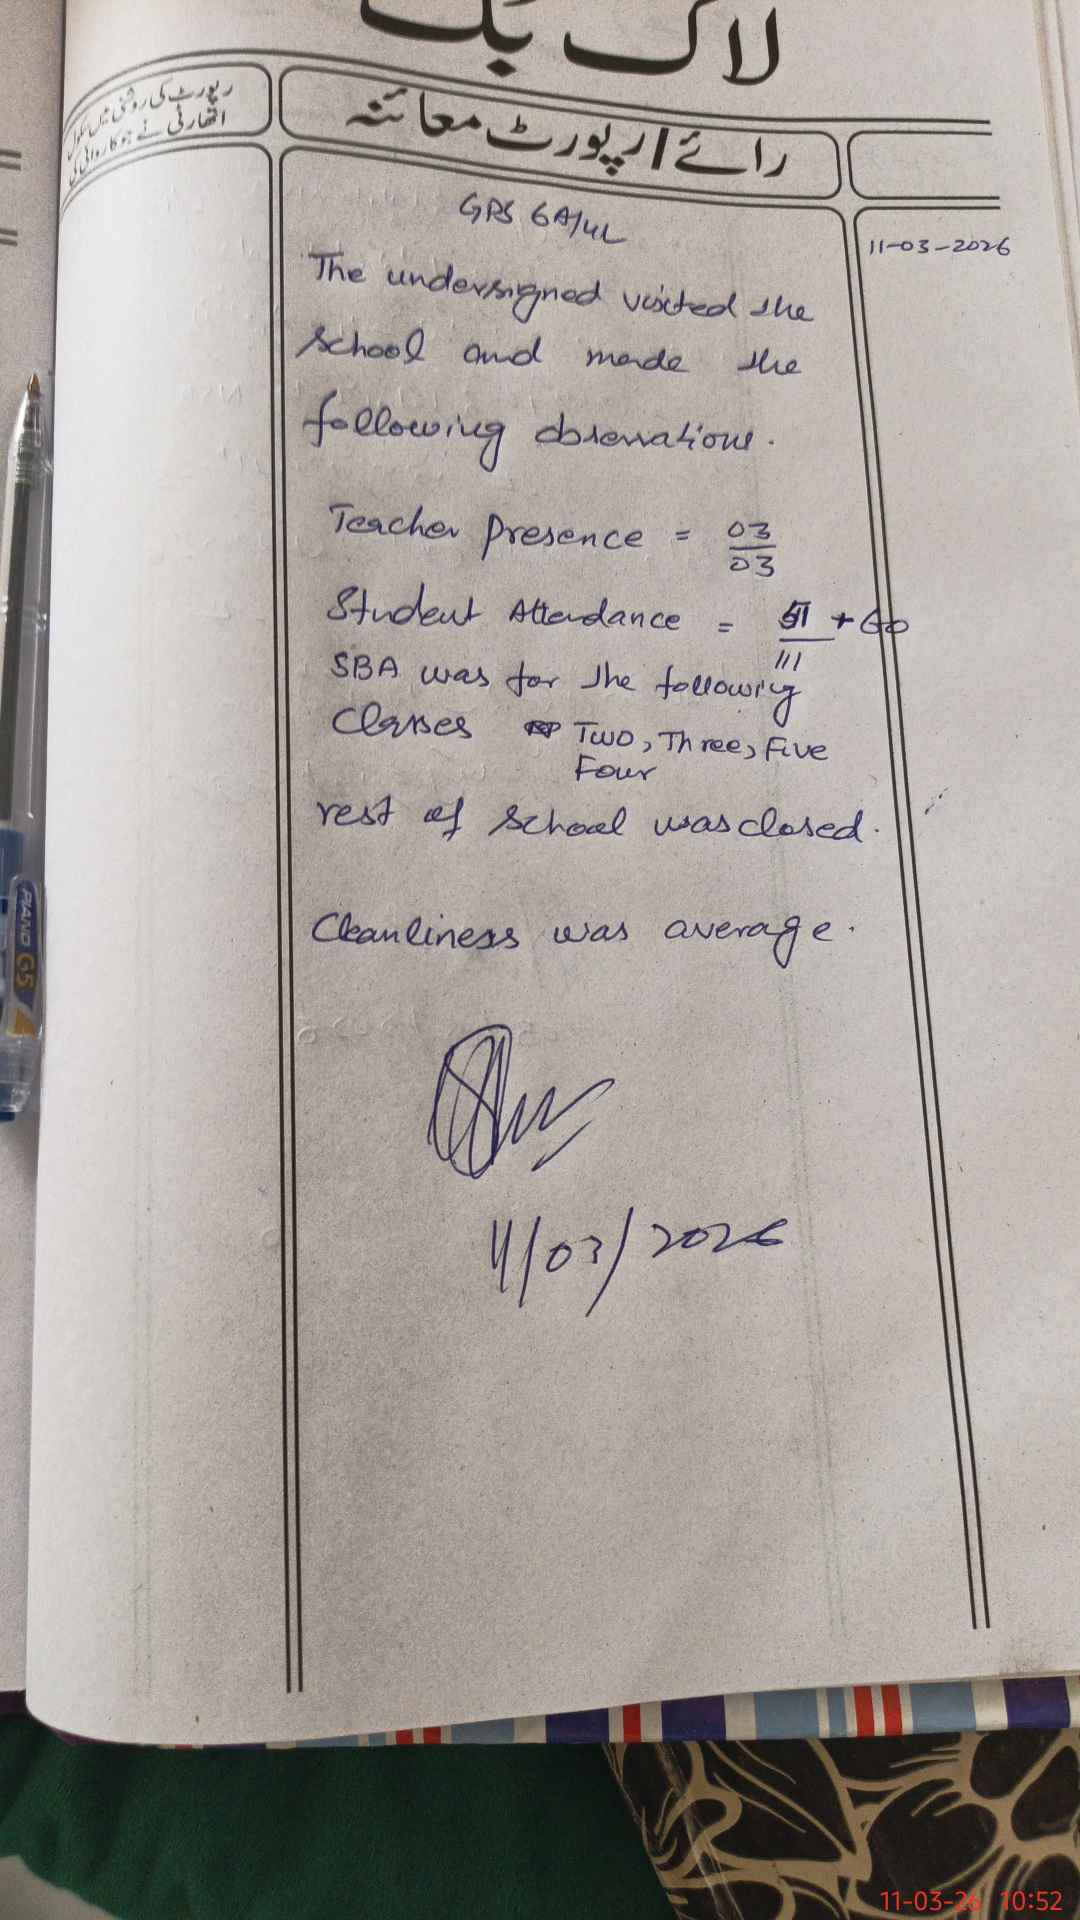 لاگ بک
رپورٹ کی روشنی میں سکول
اتھارٹی نے جو کاروائی کی
رائے / رپورٹ معائنہ
GPS 6A/4L
11-03-2026
The undersigned visited the
school and made the
following observations.
Teacher presence = 03/03
Student Attendance = 51 + 60
111
SBA was for the following
Classes Two, Three, Five
Four
rest of school was closed.
Cleanliness was average.
11/03/2026
PIANO G5
11-03-26 10:52